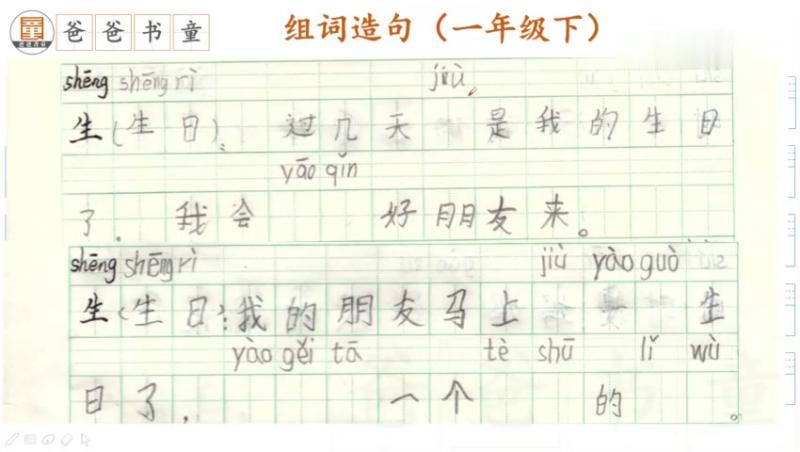 童 爸爸书童
组词造句（一年级下）
shēng shēng rì jiù
生(生日): 过几天 是我的生日
yāo qǐn
了. 我会 好朋友来。
shēng shēng rì jiù yào guò
生(生日):我的朋友马上 生
yào gěi tā tè shū lǐ wù
日了, 一个 的 。